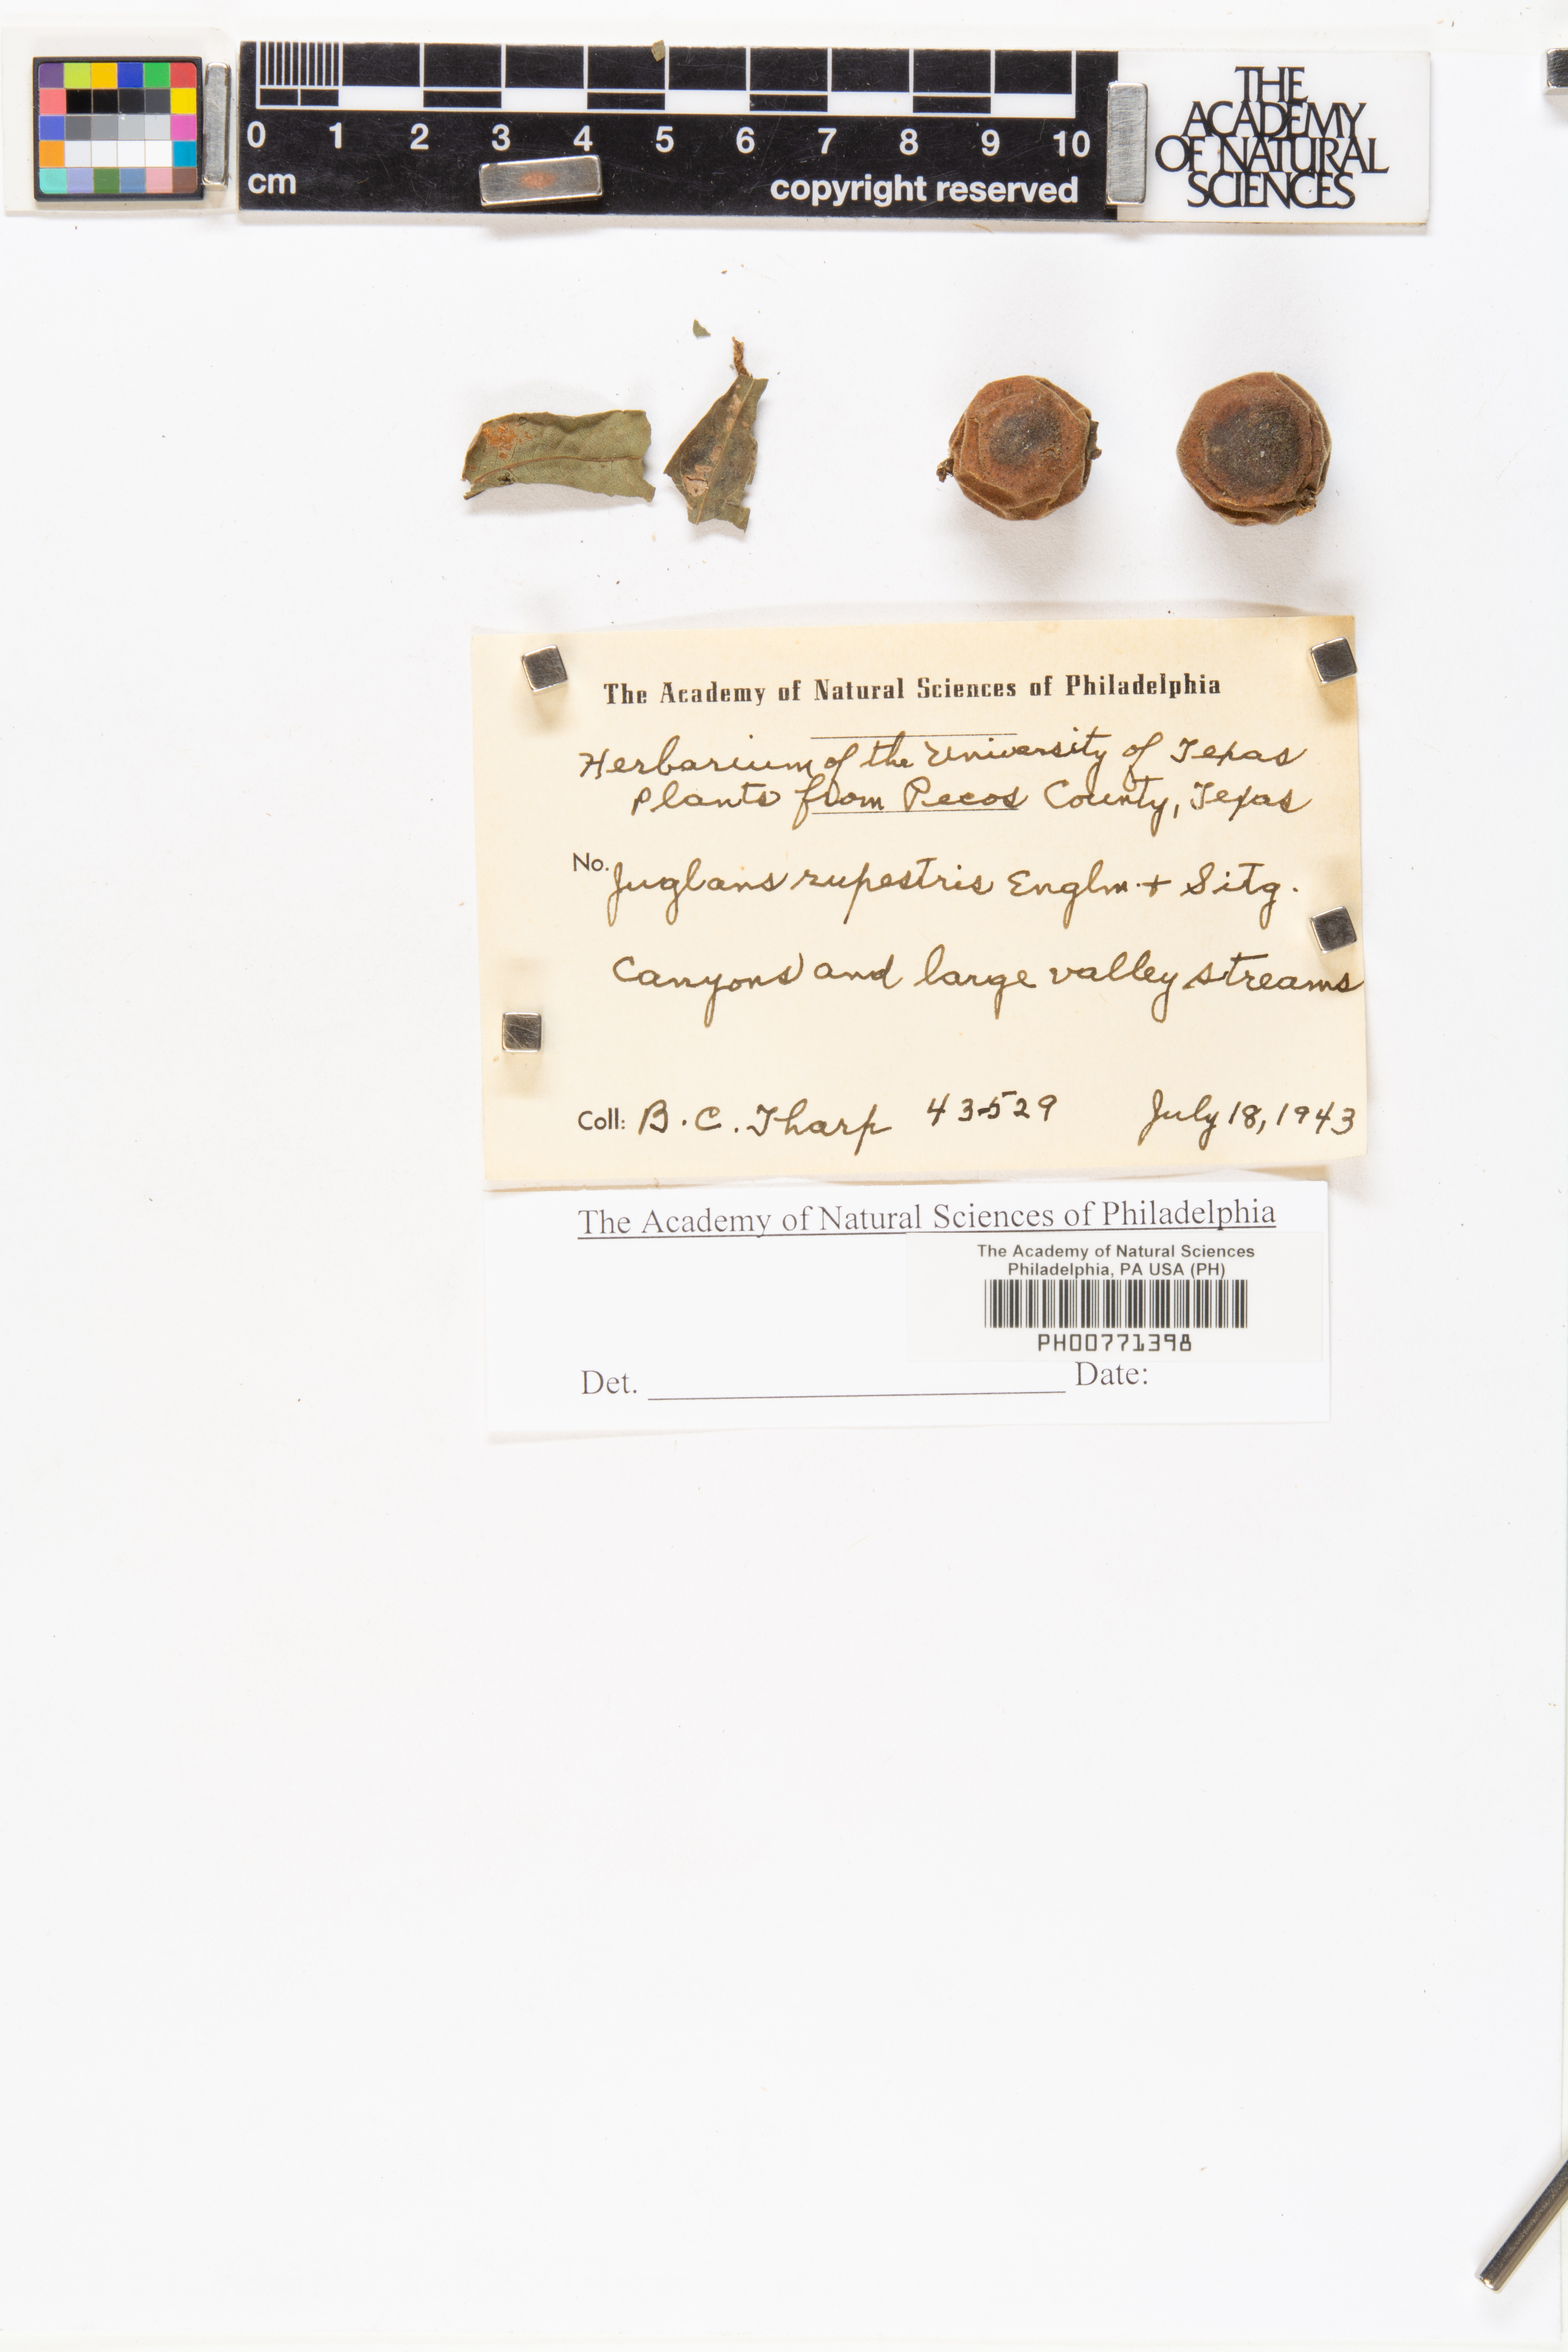 0 1 2 3 4 5 6 7 8 9 10
cm copyright reserved
THE
ACADEMY
OF NATURAL
SCIENCES
The Academy of Natural Sciences of Philadelphia
Herbarium of the University of Texas
Plants from Pecos County, Texas
No. Juglans rupestris Englm. + Sitg.
Canyons and large valley streams
Coll: B. C. Tharp 43-529 July 18, 1943
The Academy of Natural Sciences of Philadelphia
The Academy of Natural Sciences
Philadelphia, PA USA (PH)
PH00771398
Det. Date: